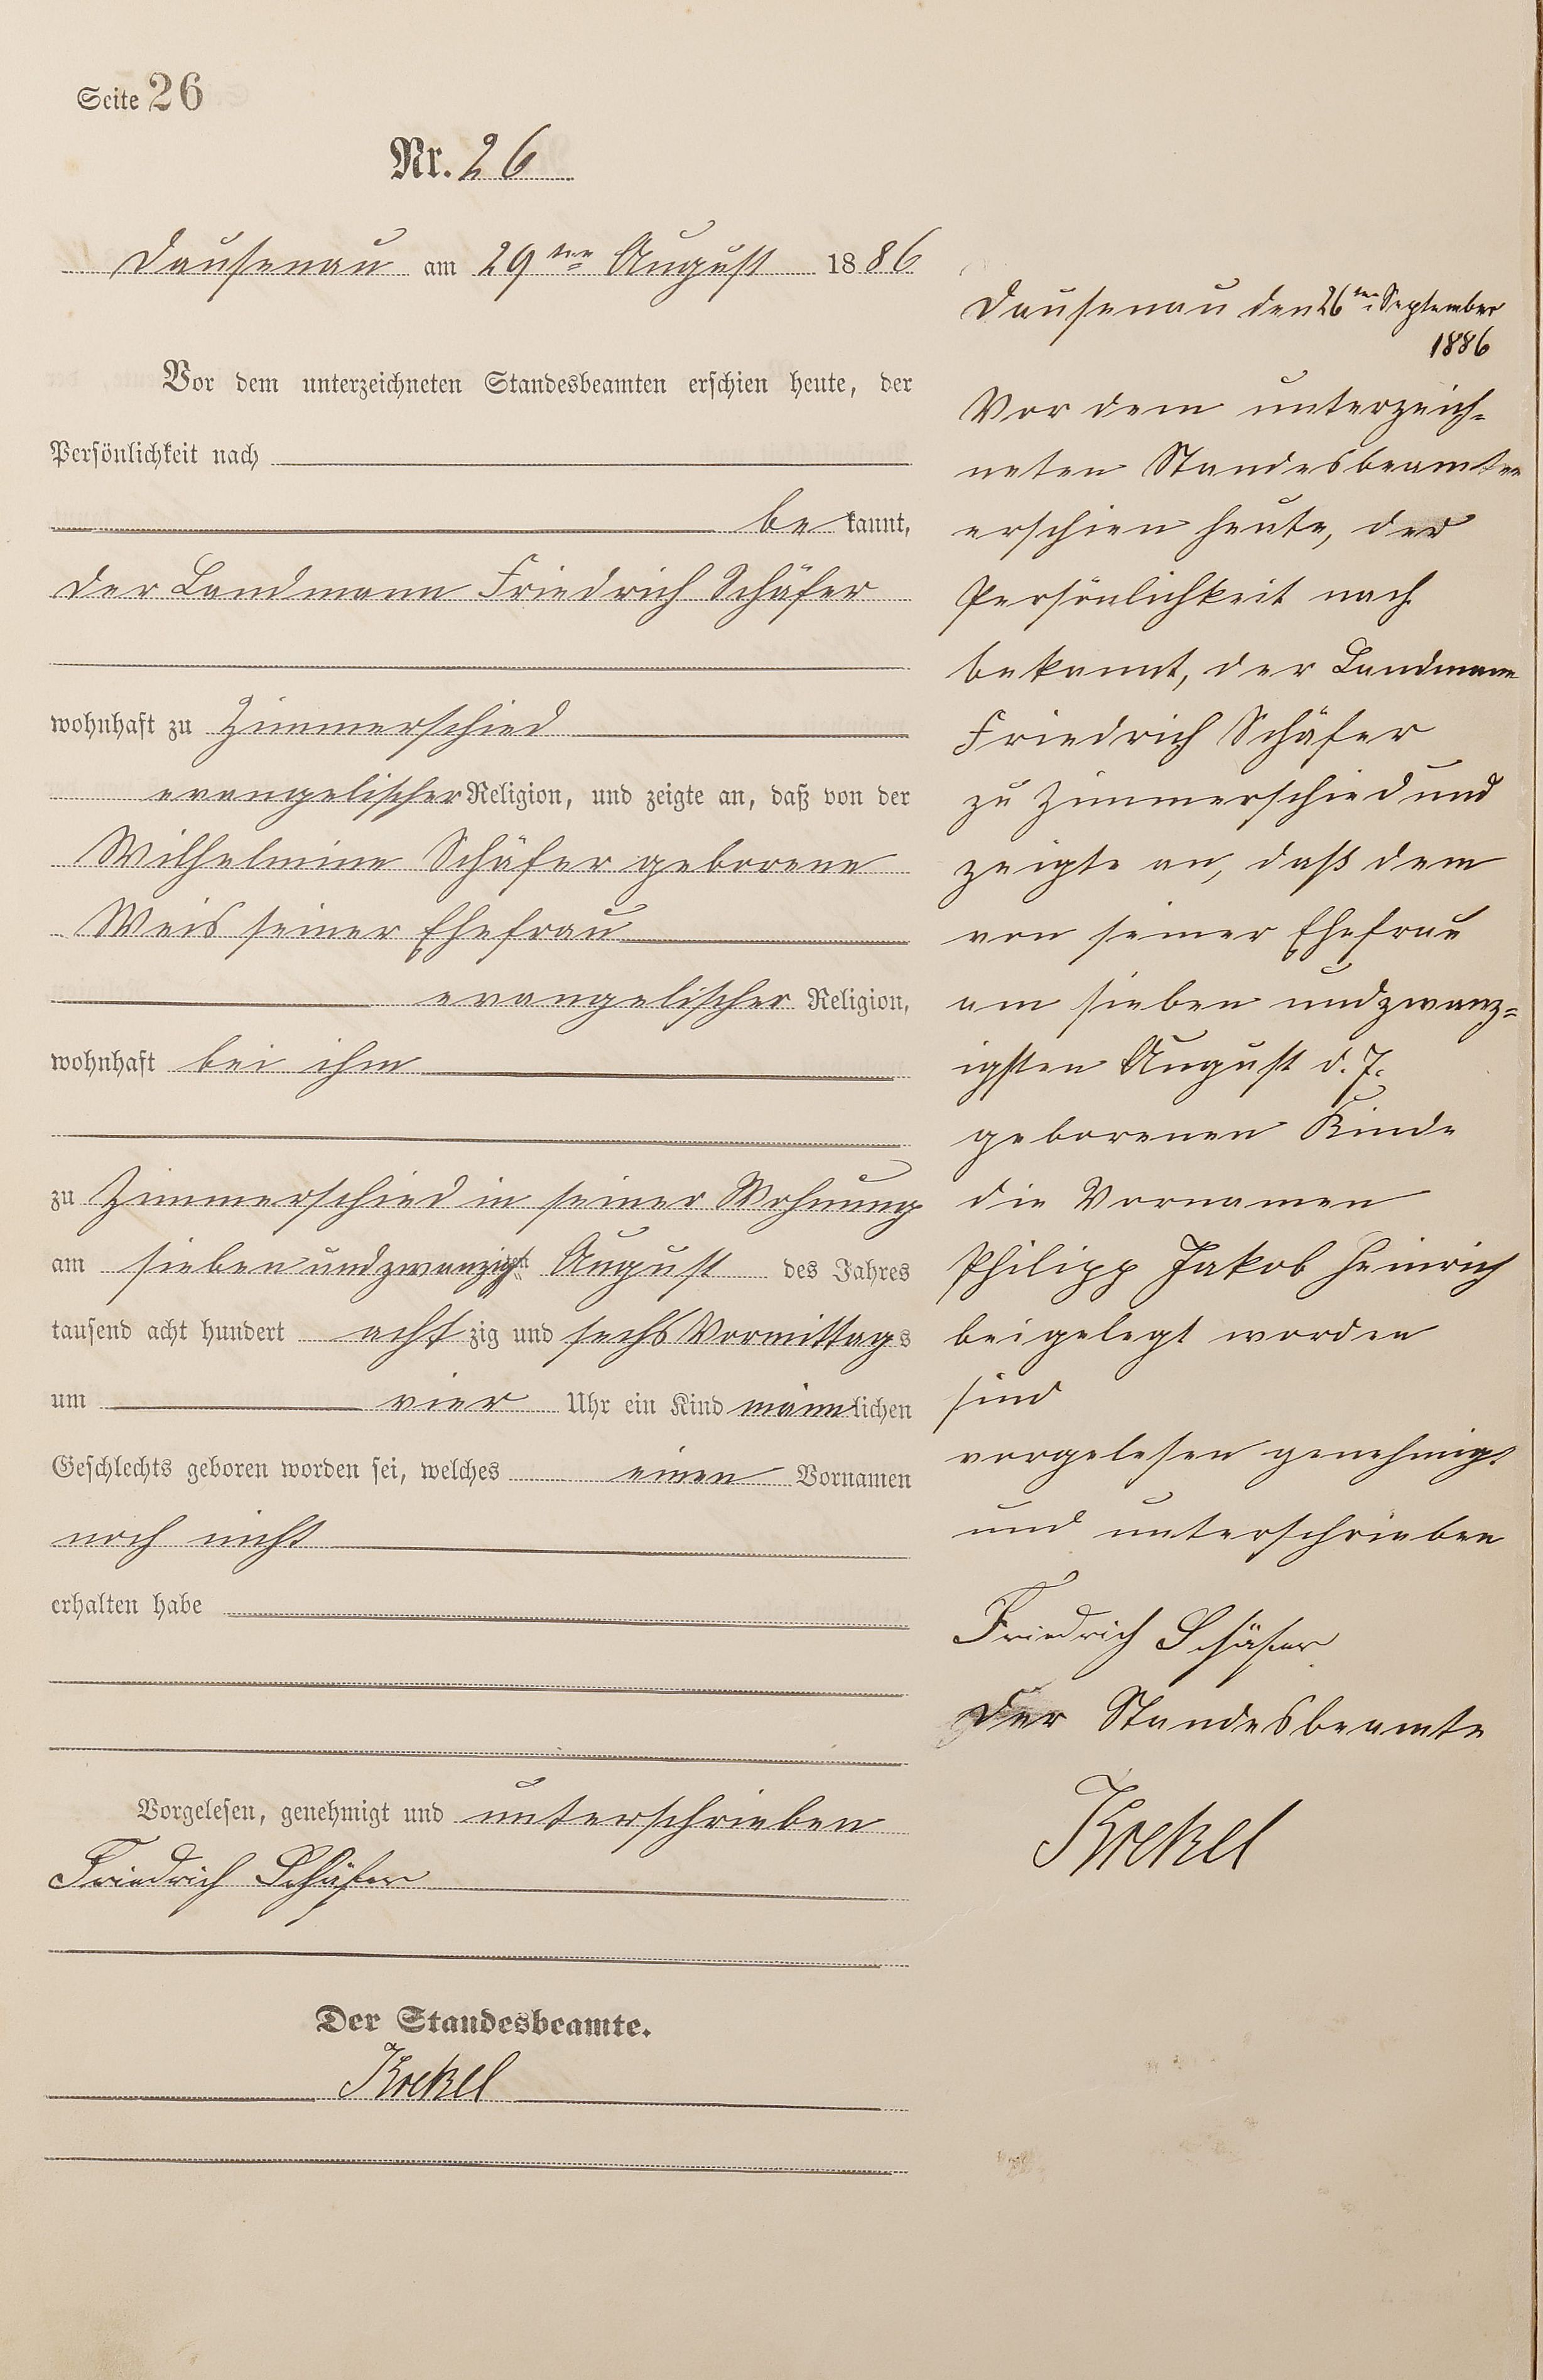 Seite 26
Nr. 26
Dausenau am 29ten August 1886
Vor dem unterzeichneten Standesbeamten erschien heute, der
Persönlichkeit nach
bekannt,
der Landmann Friedrich Schäfer
wohnhaft zu Zimmerschied
evangelischer Religion, und zeigte an, daß von der
Wilhelmine Schäfer geborene
Weis seiner Ehefrau
evangelischer Religion,
wohnhaft bei ihm
zu Zimmerschied in seiner Wohnung
am siebenundzwanzigsten August des Jahres
tausend acht hundert achtzig und sechs Vormittags
um vier Uhr ein Kind männlichen
Geschlechts geboren worden sei, welches einen Vornamen
noch nicht
erhalten habe
Vorgelesen, genehmigt und unterschrieben
Friedrich Schäfer
Der Standesbeamte.
Krekel
Dausenau den 26ten September
1886
Vor dem unterzeich=
neten Standesbeamten
erschien heute, der
Persönlichkeit nach
bekannt, der Landmann
Friedrich Schäfer
zu Zimmerschied und
zeigte an, daß dem
von seiner Ehefrau
am sieben undzwanz=
igsten August d. J.
geborenen Kinde
die Vornamen
Philipp Jakob Heinrich
beigelegt worden
sind
vorgelesen genehmigt
und unterschrieben
Friedrich Schäfer
Der Standesbeamte
Krekel